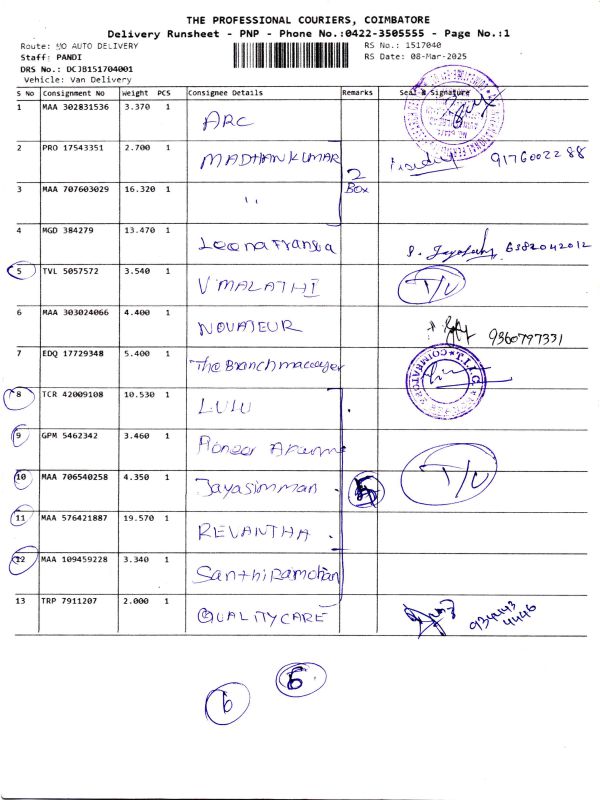 THE PROFESSIONAL COURIERS, COIMBATORE
Delivery Runsheet - PNP - Phone No.:0422-3505555 - Page No.:1
Route: NO AUTO DELIVERY RS No.: 1517040
Staff: PANDI RS Date: 08-Mar-2025
DRS No.: DCJB151704001
Vehicle: Van Delivery
S No Consignment No Weight PCS Consignee Details Remarks Seal & Signature
1 MAA 302831536 3.370 1 ARC
2 PRO 17543351 2.700 1 MADHANKUMAR 2 Box 9176002288
3 MAA 707603029 16.320 1 "
4 MGD 384279 13.470 1 Leena Fransia 6382042012
5 TVL 5057572 3.540 1 V MALATHI T/U
6 MAA 303024066 4.400 1 NOVATEUR 9360797331
7 EDQ 17729348 5.400 1 The Branch manager T.I.I.C COIMBATORE
8 TCR 42009108 10.530 1 LULU
9 GPM 5462342 3.460 1
10 MAA 706540258 4.350 1 Jayasimman 5 T/U
11 MAA 576421887 19.570 1 REVANTHA
12 MAA 109459228 3.340 1 Santhi Ramohan
13 TRP 7911207 2.000 1 QUALITYCARE 934443 4446
6 5